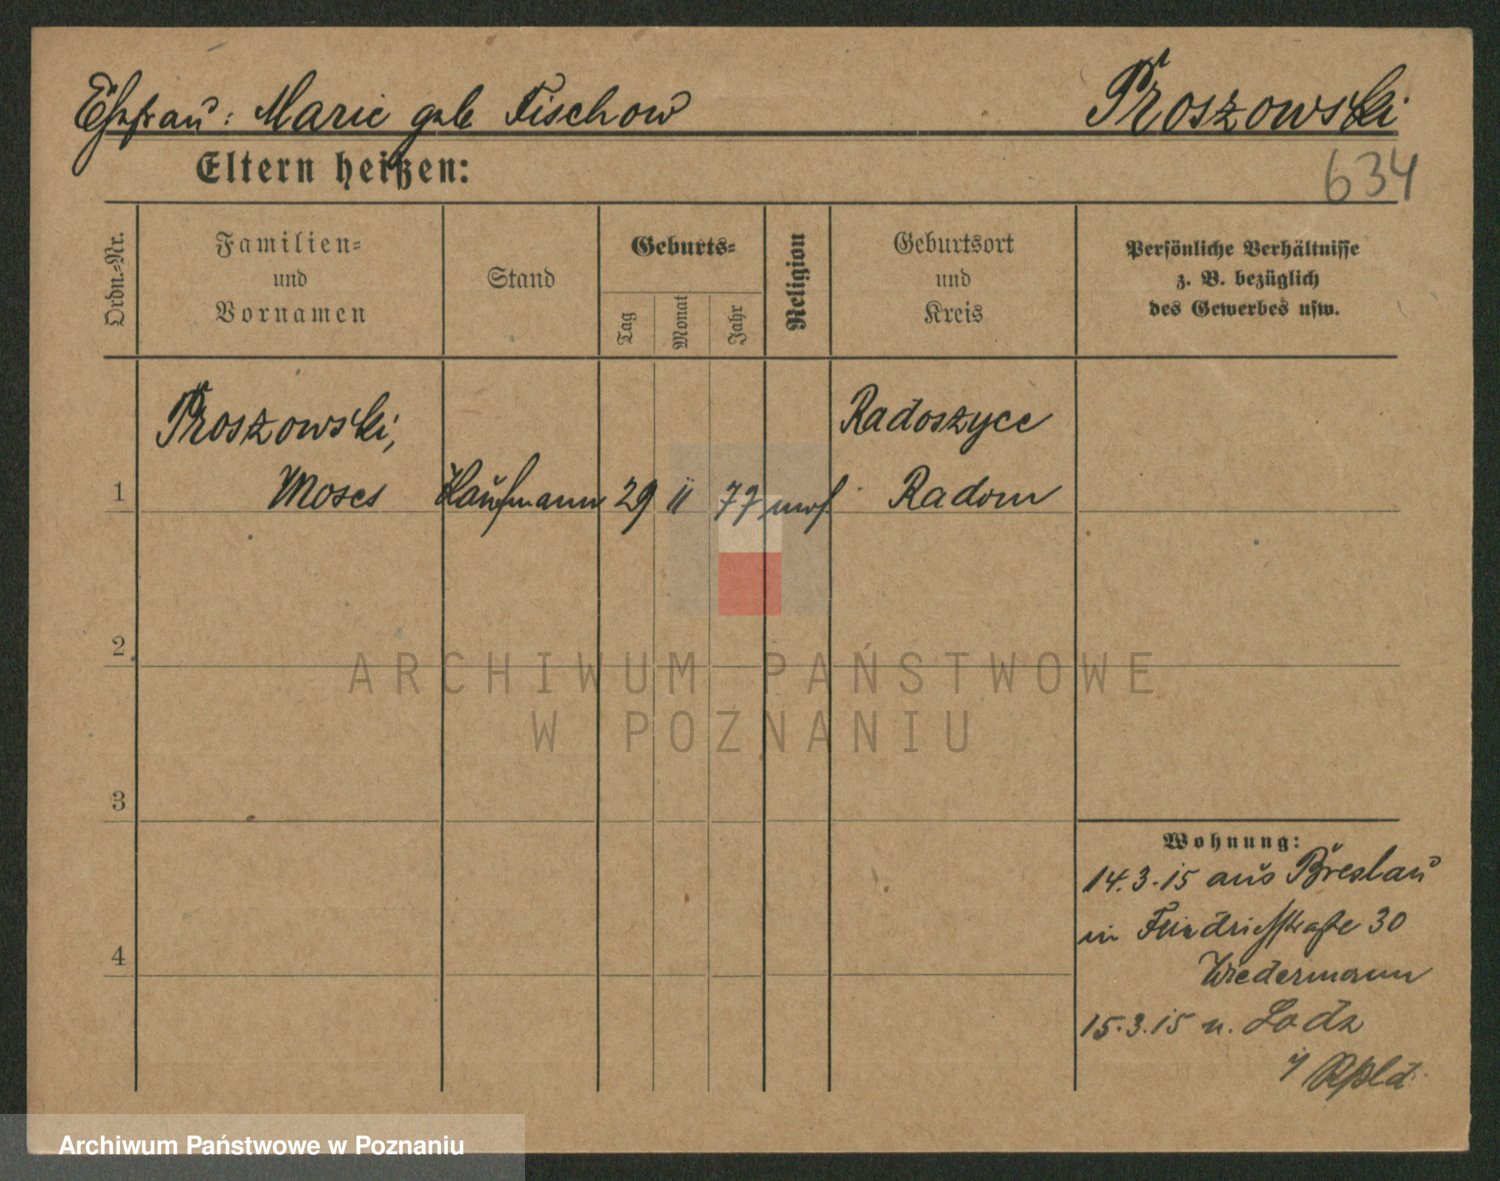 Ehefrau: Marie geb Fischow
Proszowski
Eltern heißen:
634
Ordn.-Nr.
Familien-
und
Vornamen
Stand
Geburts-
Tag
Monat
Jahr
Religion
Geburtsort
und
Kreis
Persönliche Verhältnisse
z. B. bezüglich
des Gewerbes usw.
Proszowski,
Radoszyce
1
Moses
Kaufmann
29
II
77
mos.
Radom
2
3
4
Wohnung:
14.3.15 aus Breslau
in Friedrichstraße 30
Wiedermann
15.3.15 n. Lodz
ARCHIWUM PAŃSTWOWE
W POZNANIU
Archiwum Państwowe w Poznaniu